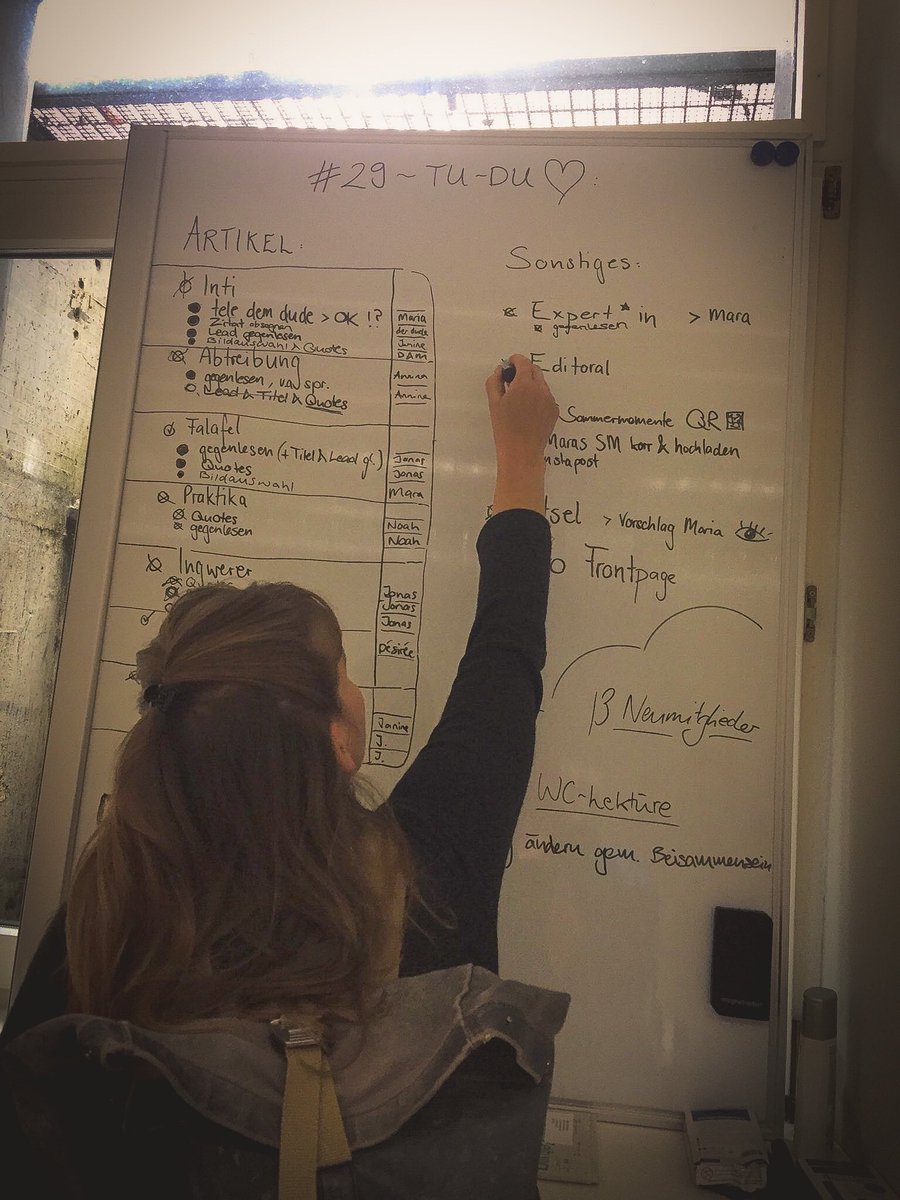 #29 ~ TU-DU ♡:
ARTIKEL:
Inti
tele dem dude > OK !? Maria
Zitat absegnen der dude
Lead gegenlesen Janine
Bildauswahl & Quotes DAM
Abtreibung
gegenlesen, v.a. spr. Annina
Lead & Titel & Quotes Annine
Falafel
gegenlesen (+ Titel & Lead gl.) Jonas
Quotes Jonas
Bildauswahl Mara
Praktika
Quotes Noah
gegenlesen Noah
Ingwerer
Jonas
Jonas
Jonas
Désirée
Janine
J.
J.
Sonstiges:
Expert*in > Mara
gegenlesen
Editoral
Sommermomente QR
Maras SM korr & hochladen
> Vorschlag Maria
Frontpage
Neumitglieder
WC-Lektüre
ändern gem. Beisammensein